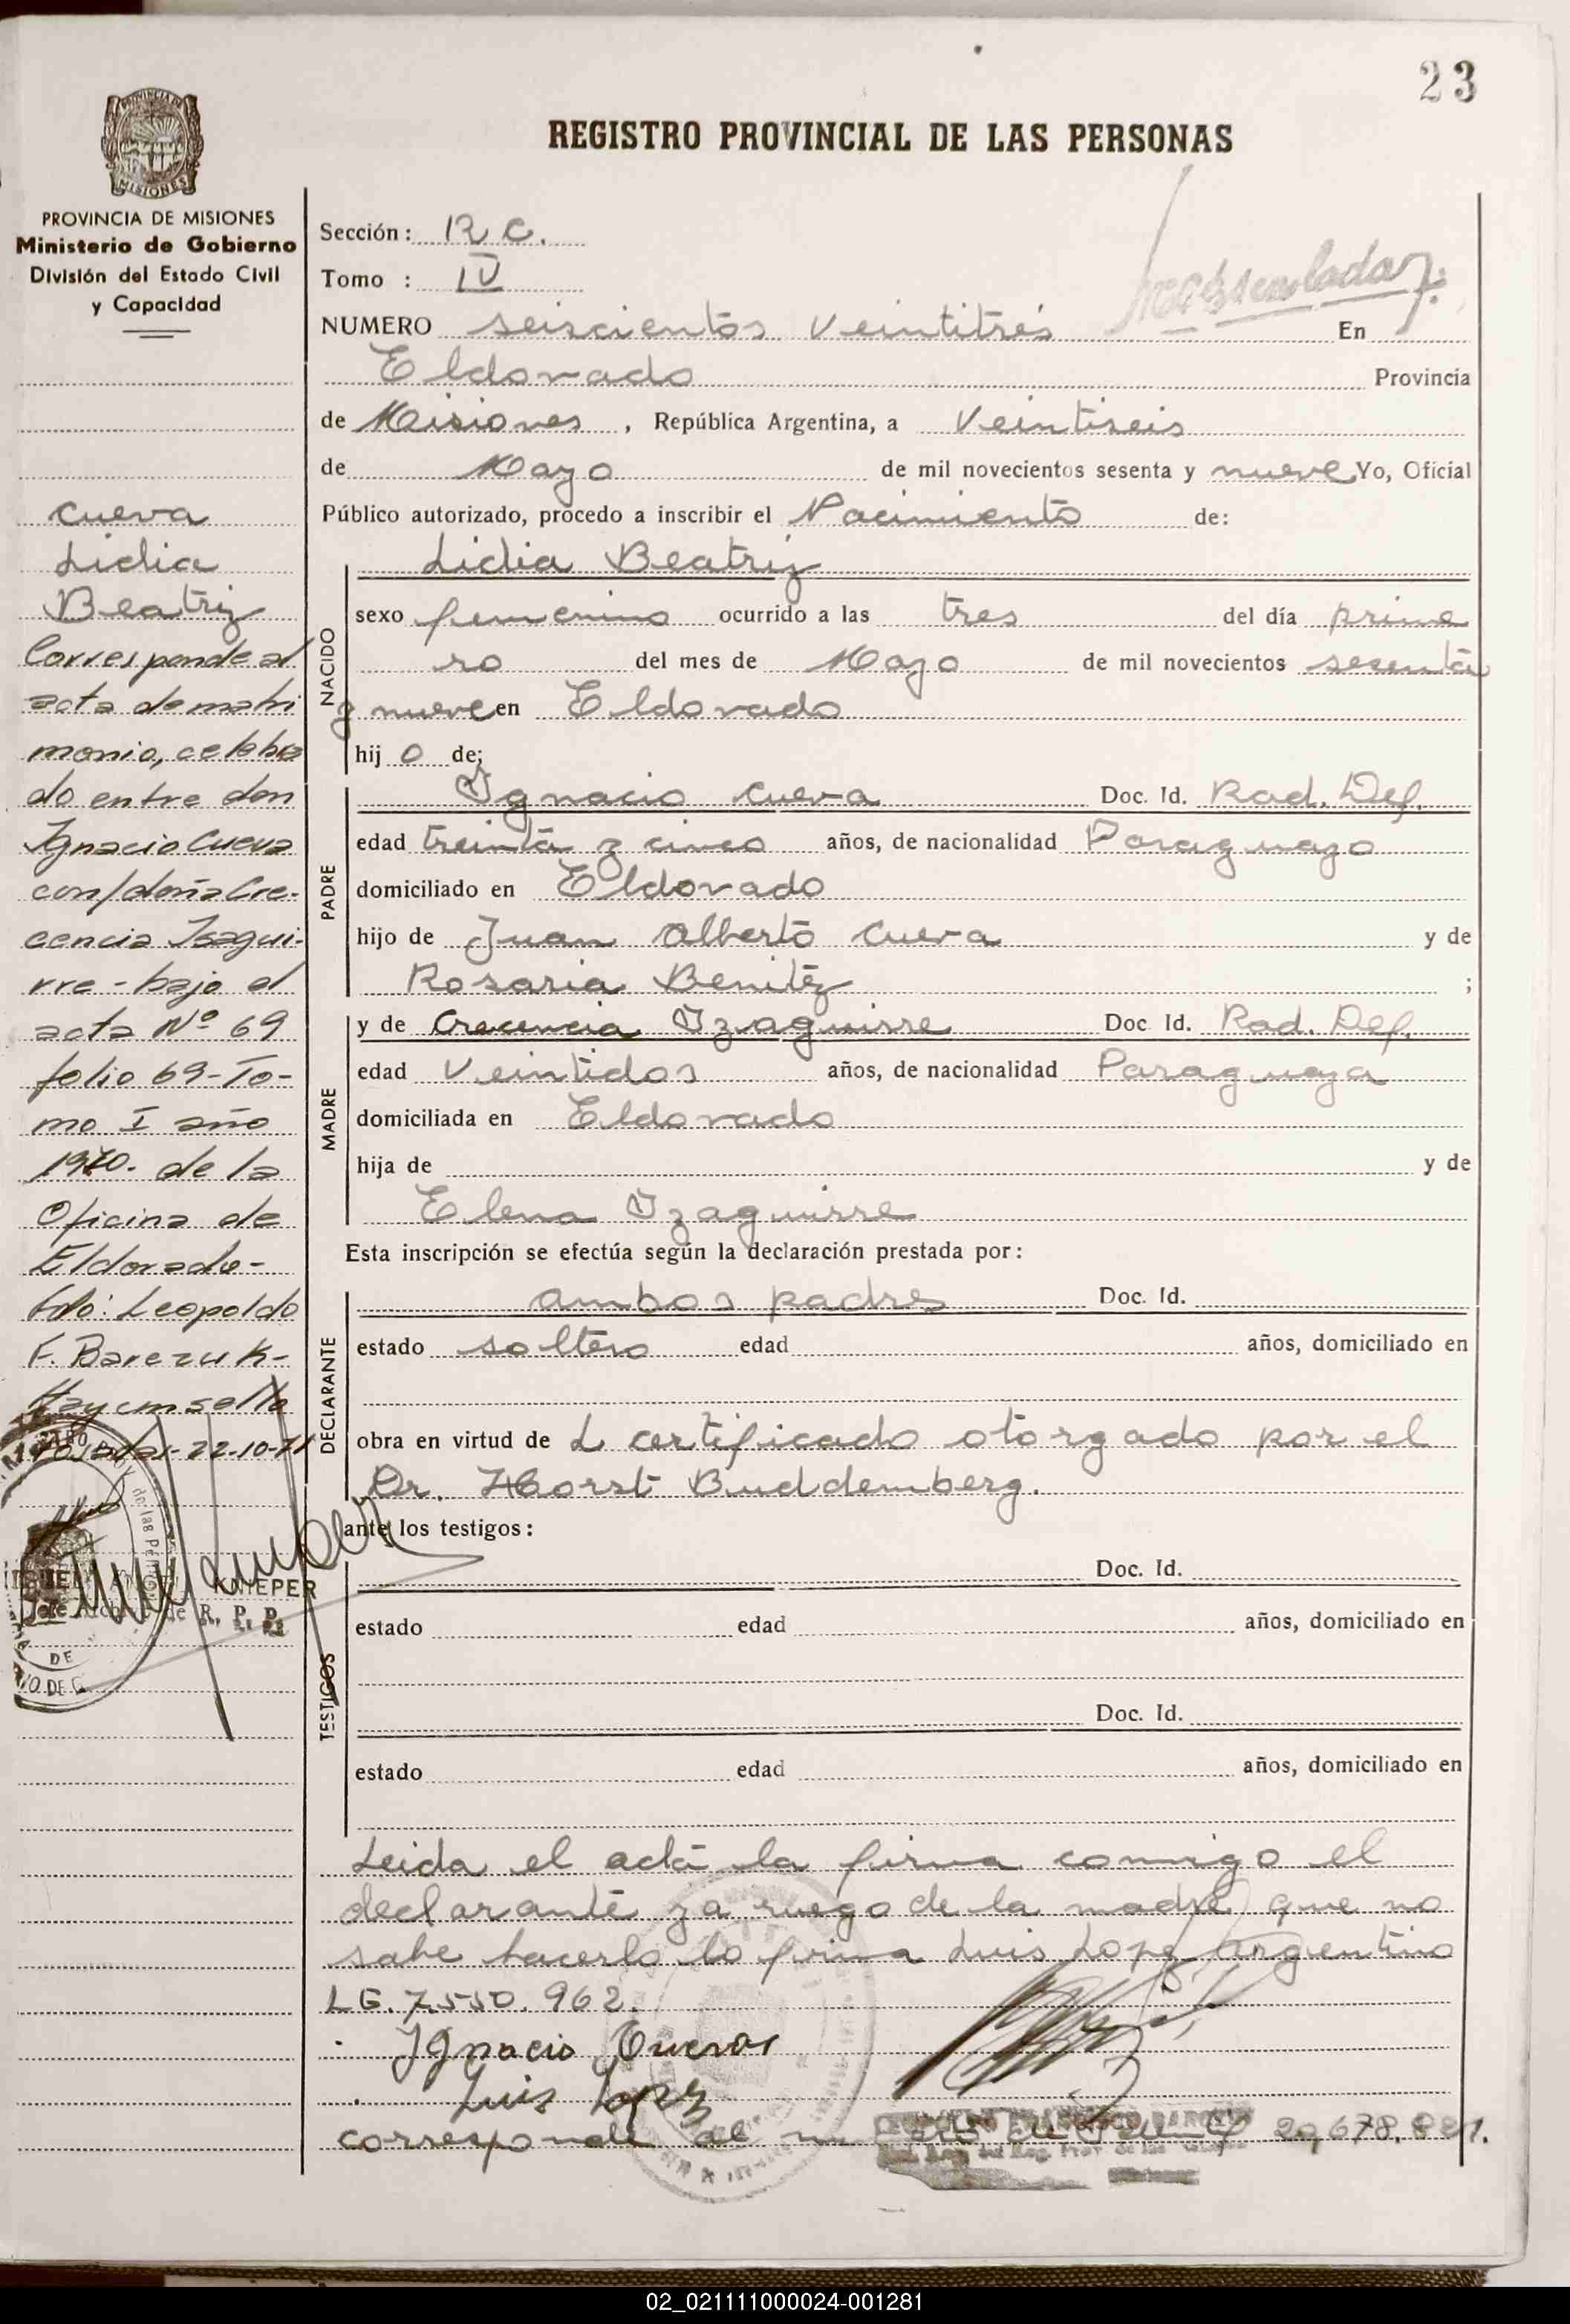 23
REGISTRO PROVINCIAL DE LAS PERSONAS
PROVINCIA DE MISIONES
Ministerio de Gobierno
División del Estado Civil
y Capacidad
Cueva
Lidia
Beatriz
Corresponde al
acta de matri
monio, celebra
do entre don
Ignacio Cueva
con/doña Cre-
cencia Isagui-
rre - bajo el
acta Nº 69
folio 69 - To-
mo I año
1970. de la
Oficina de
Eldorado -
Fdo: Leopoldo
F. Barczuk -
Hay un sello
Posadas - 22-10-71
KNIEPER
Jefe Archivo de R. P. P.
Sección: R C.
Tomo : IV
NUMERO seiscientos veintitrés En
Eldorado Provincia
de Misiones, República Argentina, a Veintiseis
de Mayo de mil novecientos sesenta y nueve Yo, Oficial
Público autorizado, procedo a inscribir el Nacimiento de:
NACIDO
Lidia Beatriz
sexo femenino ocurrido a las tres del día prime
ro del mes de Mayo de mil novecientos sesenta
y nueve en Eldorado
hij o de;
PADRE
Ignacio Cueva Doc. Id. Rad. Def.
edad treinta y cinco años, de nacionalidad Paraguayo
domiciliado en Eldorado
hijo de Juan Alberto Cueva y de
Rosaria Benitez ;
MADRE
y de Crecencia Izaguirre Doc. Id. Rad. Def.
edad Veintidos años, de nacionalidad Paraguaya
domiciliada en Eldorado
hija de y de
Elena Izaguirre
Esta inscripción se efectúa según la declaración prestada por:
DECLARANTE
ambos padres Doc. Id.
estado soltero edad años, domiciliado en
obra en virtud de L certificado otorgado por el
Dr. Horst Buddemberg.
ante los testigos:
TESTIGOS
Doc. Id.
estado edad años, domiciliado en
Doc. Id.
estado edad años, domiciliado en
Leida el acta la firma conmigo el
declarante y a ruego de la madre que no
sabe hacerlo lo firma Luis Lopez Argentino
L E. 7.550.962.
Ignacio Cueva
Luis Lopez
corresponde al
02_021111000024-001281